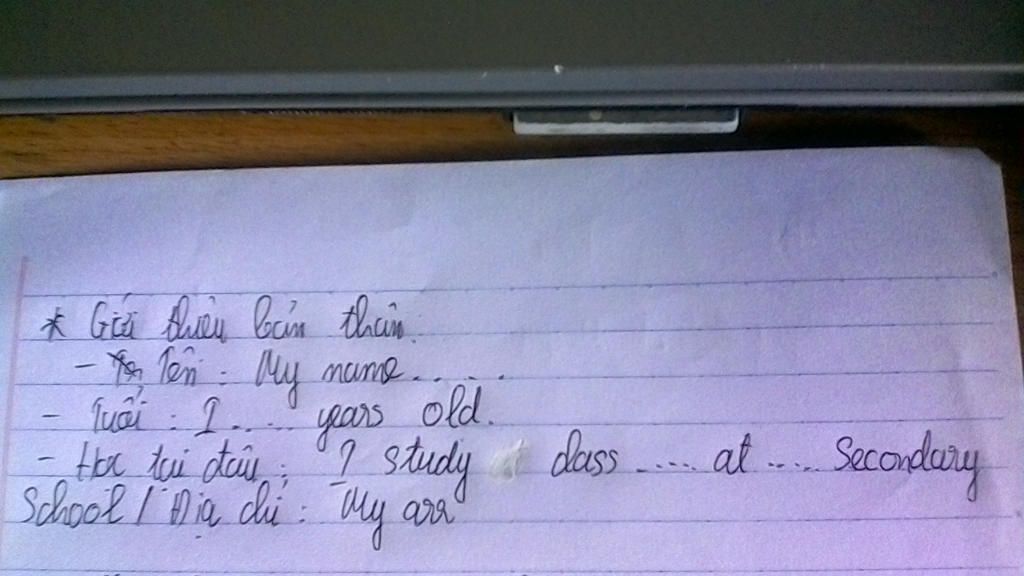 * Giới thiệu bản thân.
- Tên : My name.....
- Tuổi : I ..... years old.
- Học tại đâu : I study class ..... at ..... Secondary
School / Địa chỉ : My arr